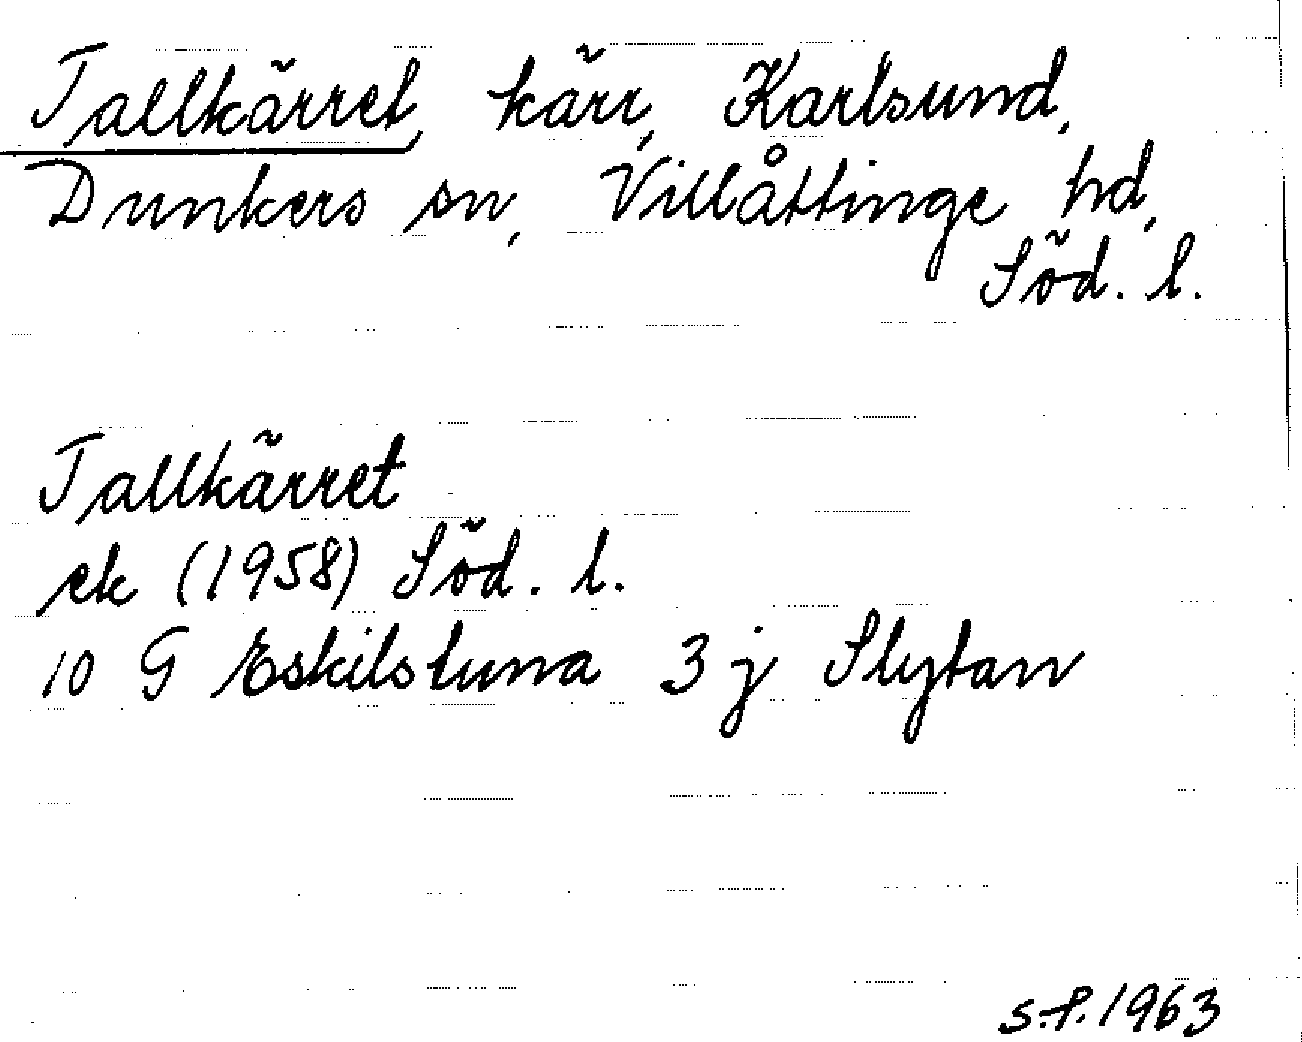 Tallkärret, kärr, Karlsund,
Dunkers sn, Villåttinge hd,
Söd. l.
Tallkärret
ek (1958) Söd. l.
10 G Eskilstuna 3 j Slytan
s.f. 1963